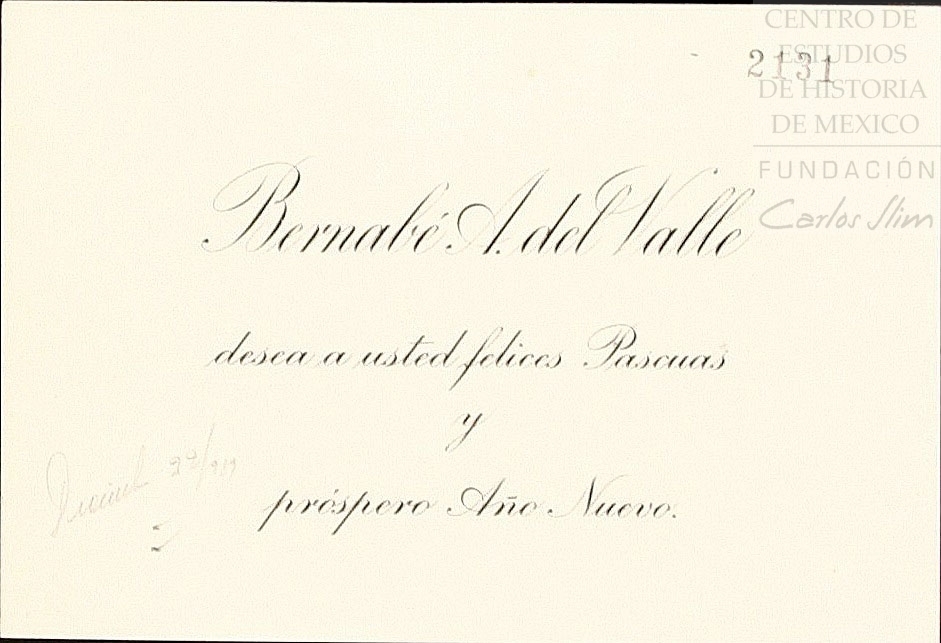 CENTRO DE
ESTUDIOS
DE HISTORIA
DE MEXICO
FUNDACIÓN
Carlos Slim
2131
Bernabé A. del Valle
desea a usted felices Pascuas
y
próspero Año Nuevo.